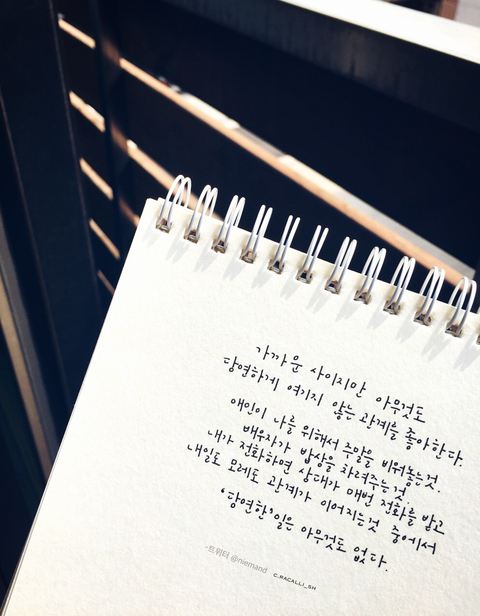 가까운 사이지만 아무것도
당연하게 여기지 않는 관계를 좋아한다.
애인이 나를 위해서 주말을 비워놓는것.
배우자가 밥상을 차려주는것.
내가 전화하면 상대가 매번 전화를 받고
내일도 모레도 관계가 이어지는것 중에서
'당연한'일은 아무것도 없다.
-트위터 @niemand
C.RACALLI_SH